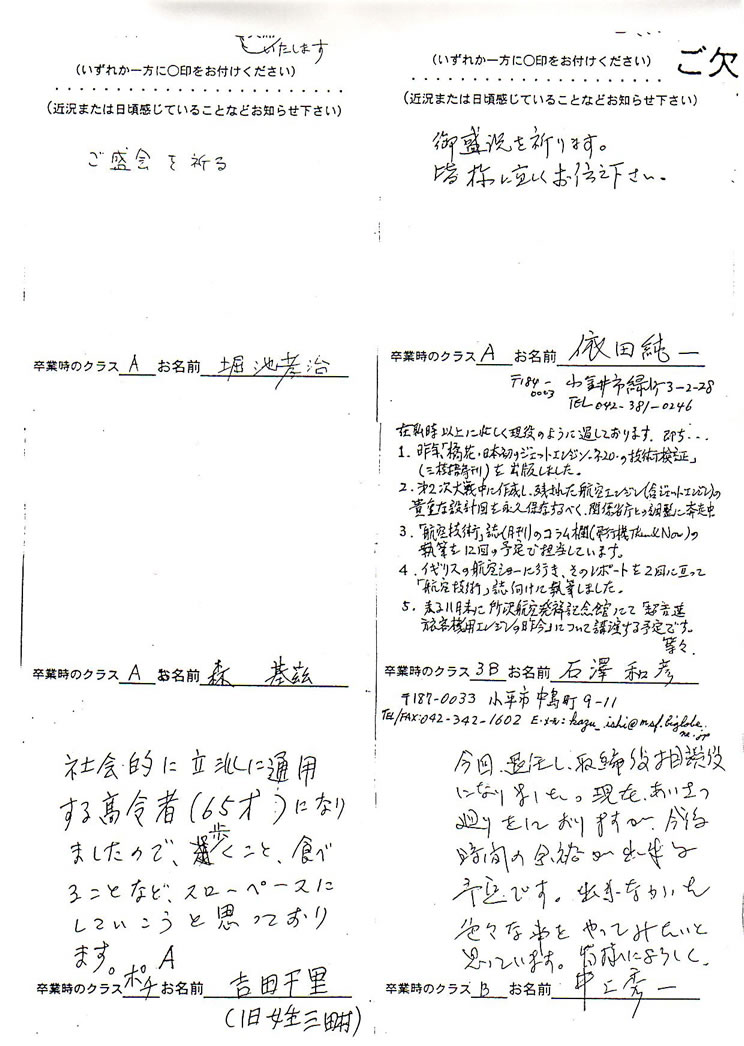 いたします
(いずれか一方に○印をお付けください)
(近況または日頃感じていることなどお知らせ下さい)
ご盛会を祈る
卒業時のクラス A お名前 堀池孝治
卒業時のクラス A お名前 森 基茲
社会的に立派に通用
する高令者(65才)になり
ましたので、歩くこと、食べ
ることなど、スローペースに
していこうと思っており
ます。 A
卒業時のクラス ポチ お名前 吉田千里
(旧姓三田村)
ご欠
(いずれか一方に○印をお付けください)
(近況または日頃感じていることなどお知らせ下さい)
御盛況を祈ります。
皆様に宜しくお伝え下さい。
卒業時のクラス A お名前 依田純一
〒184-0003 小金井市緑町3-2-28
TEL 042-381-0246
在私時以上に忙しく現役のように過しております。即ち...
1. 昨年、「橘花・日本初のジェットエンジン・ネ20の技術検証」
(三樹書房刊)を出版しました。
2. 第2次大戦中に作成し、残された航空エンジン(含ジェットエンジン)の
貴重な設計図を永久保存するべく、関係省庁との調整に奔走中
3. 「航空技術」誌(月刊)のコラム欄(飛行機Then & Now)の
執筆を12回の予定で担当しています。
4. イギリスの航空ショーに行き、そのレポートを2回に亘って
「航空技術」誌向けに執筆しました。
5. 来る11月末に所沢航空発祥記念館にて「超音速
旅客機用エンジンの昨今」について講演する予定です。
等々
卒業時のクラス 3B お名前 石澤和彦
〒187-0033 小平市中島町9-11
TEL/FAX:042-342-1602 Eメール:kazu_ishi@msf.biglobe.ne.jp
今回、退任し、取締役相談役
になりました。現在、あいさつ
廻りをしておりますが、今後
時間の余裕が出来る
予定です。出来なかった
色々な事をやってみたいと
思っています。皆様によろしく。
卒業時のクラス B お名前 井上秀一